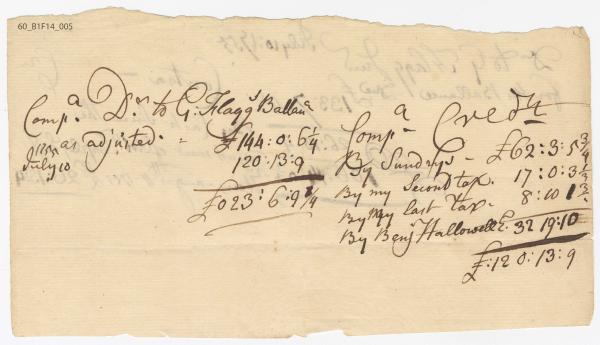 60_B1F14_005
Comp.ª Dr. to G. Flagg Ballanc
as adjusted. - £144:0:6¼
July 10 120:13:9
£023:6:9¼
Comp.ª Credit
By Sundrys - £62:3:5¾
By my Second tax. 17:0:3½
By my last Tax. - 8:10:1½
By Benj Hallowell E. 32 19:10
£:120:13:9